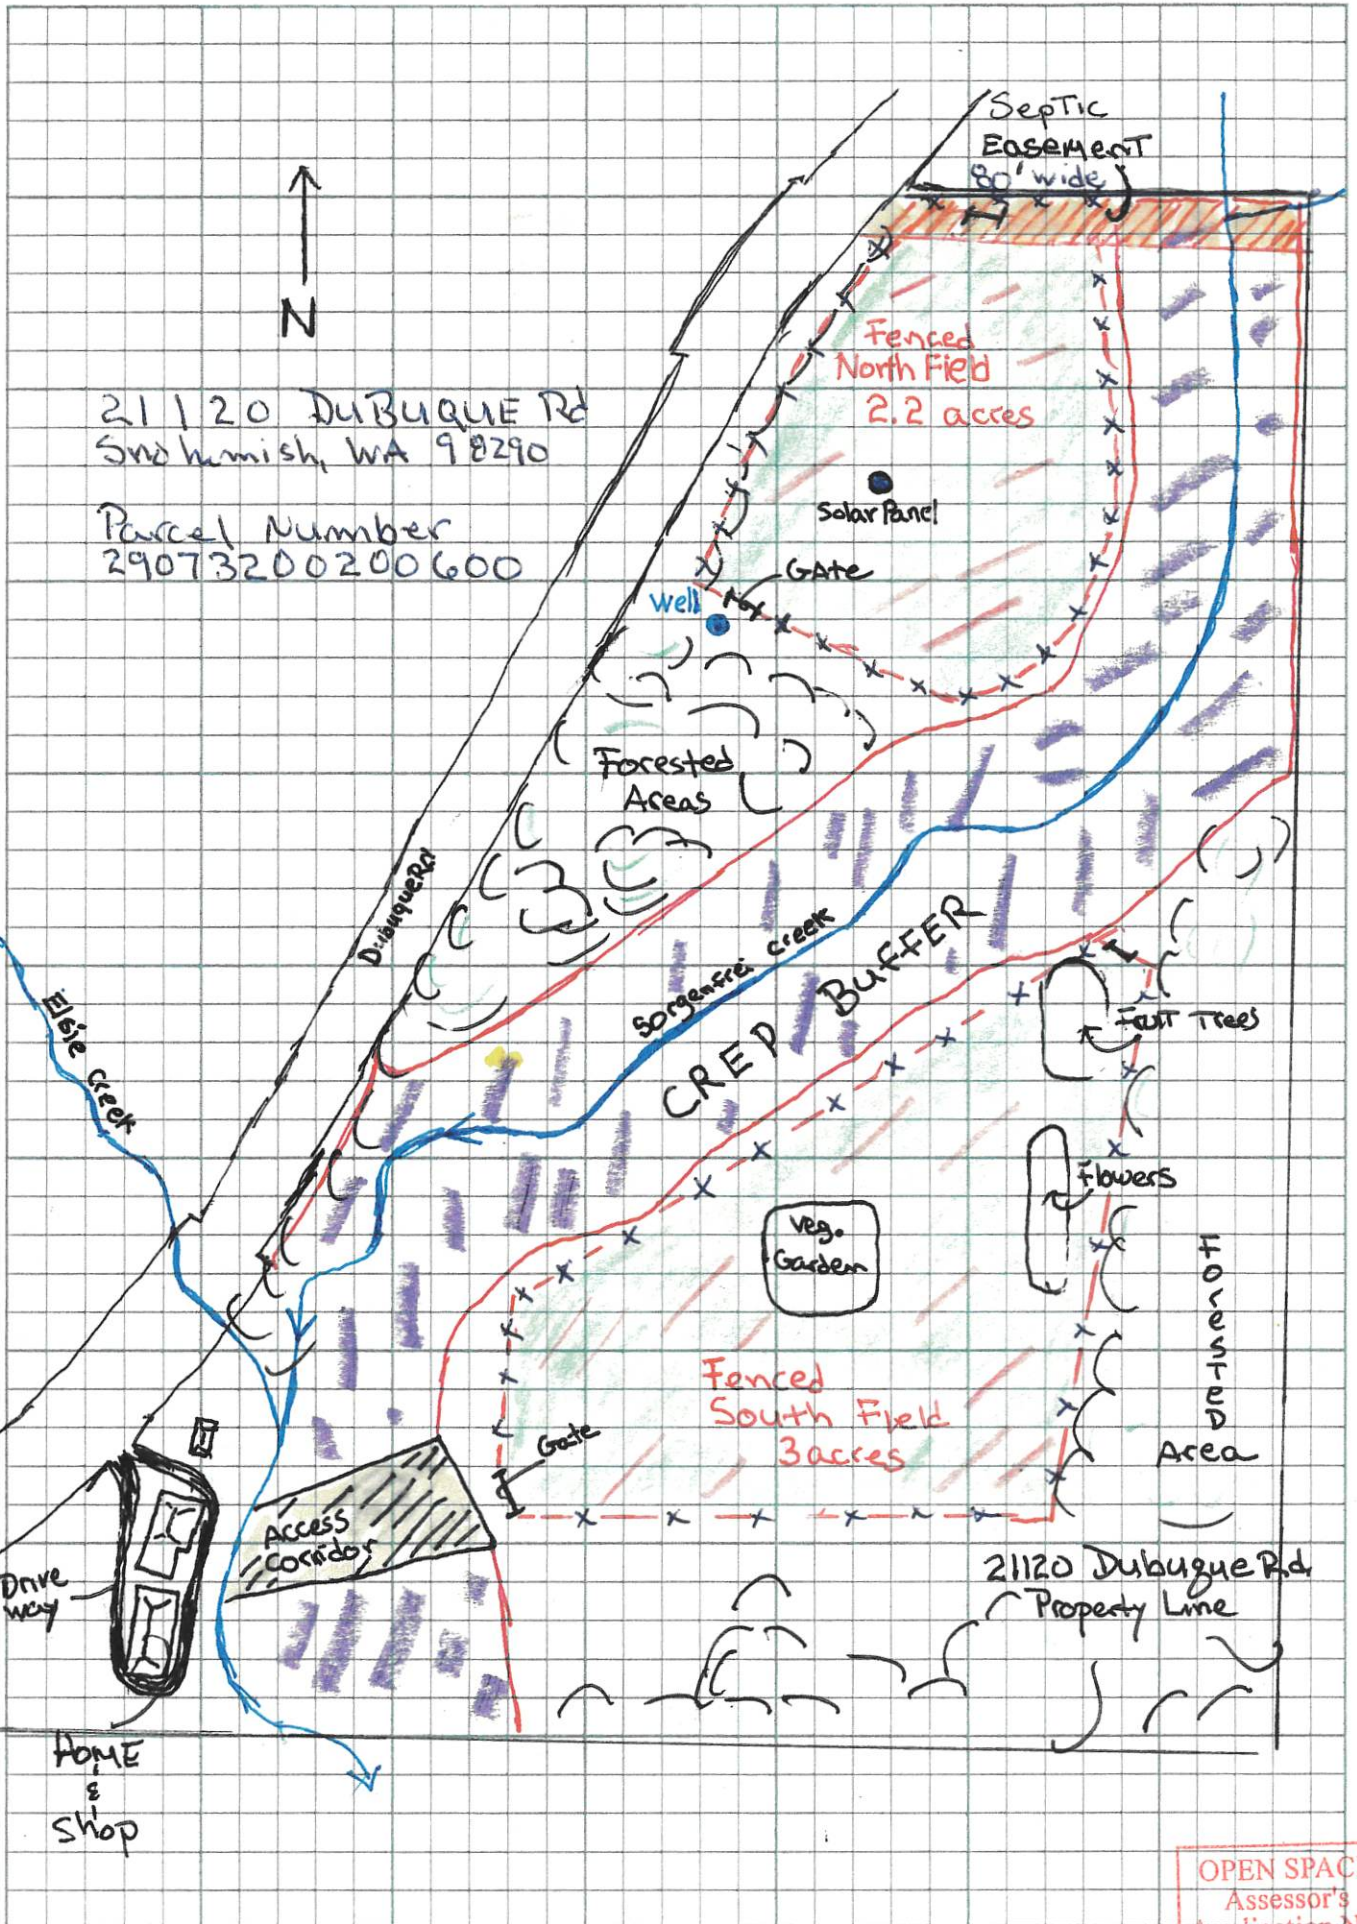 SepTic
EasemenT
80' wide
N
21120 DuBuQUE Rd
Snohomish, WA 98290
Parcel Number
29073200200600
Fenced
North Field
2.2 acres
Solar Panel
GAte
Well
Forested
Areas
Dubuque Rd
Sorgenfrei creek
CREP BUFFER
Elsie creek
Fruit Trees
Flowers
Veg.
Garden
Forested
Area
Fenced
South Field
3 acres
Gate
Access
Corridor
Drive
way
21120 Dubuque Rd.
Property Line
HOME
&
Shop
OPEN SPAC
Assessor's